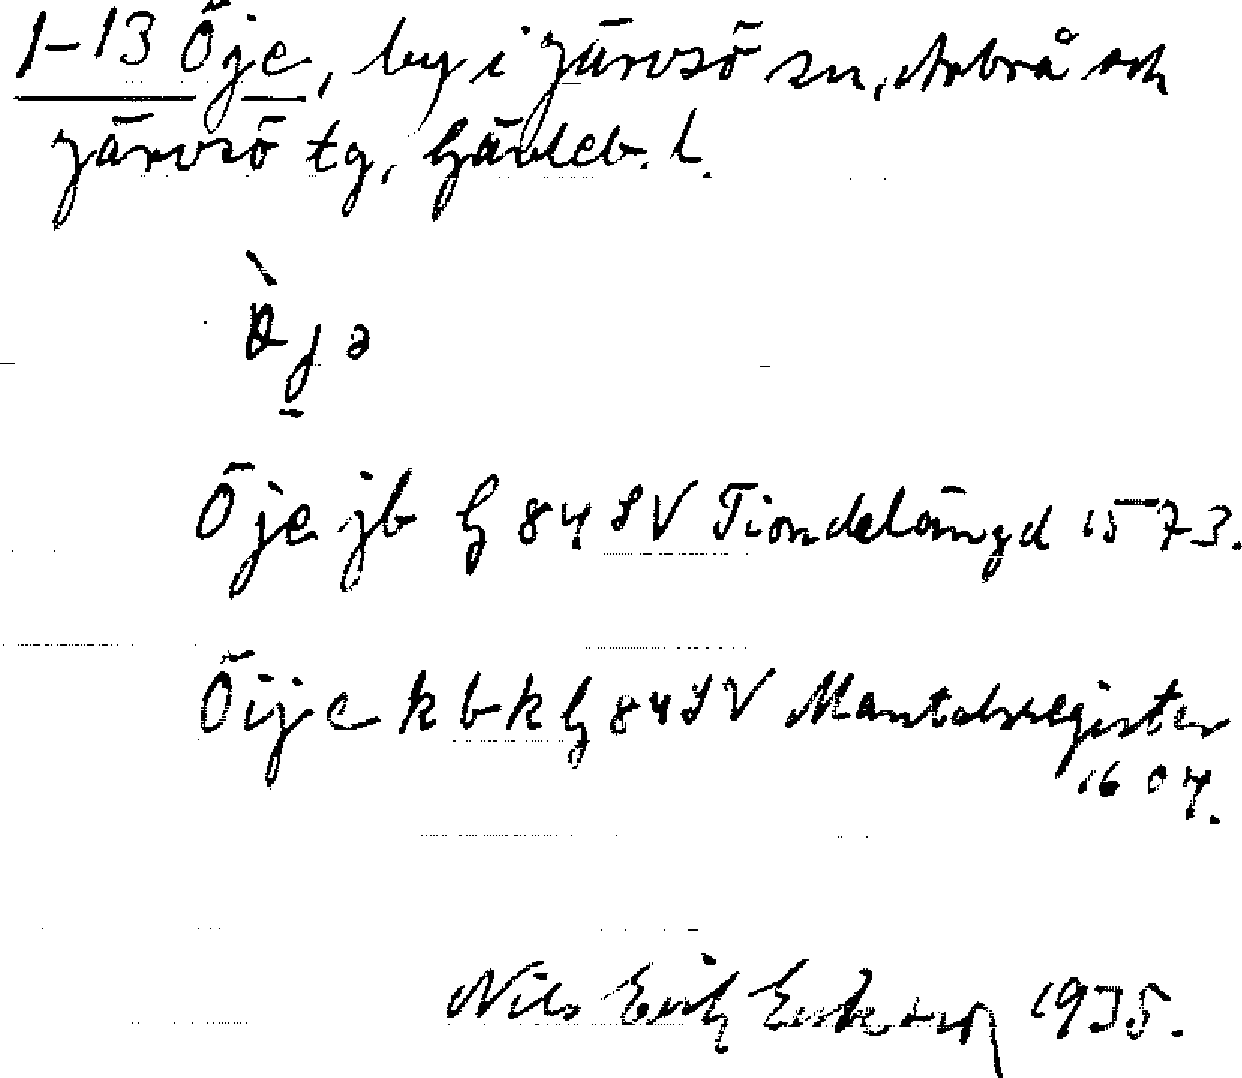 1-13 Öje, by i Järvsö sn, Arbrå och
Järvsö tg, Gävleb. l.
Öje jb G 84 SV Tiondelängd 1573.
Öije k b k G 84 SV Mantalsregister
1604.
Nils Erik 1935.